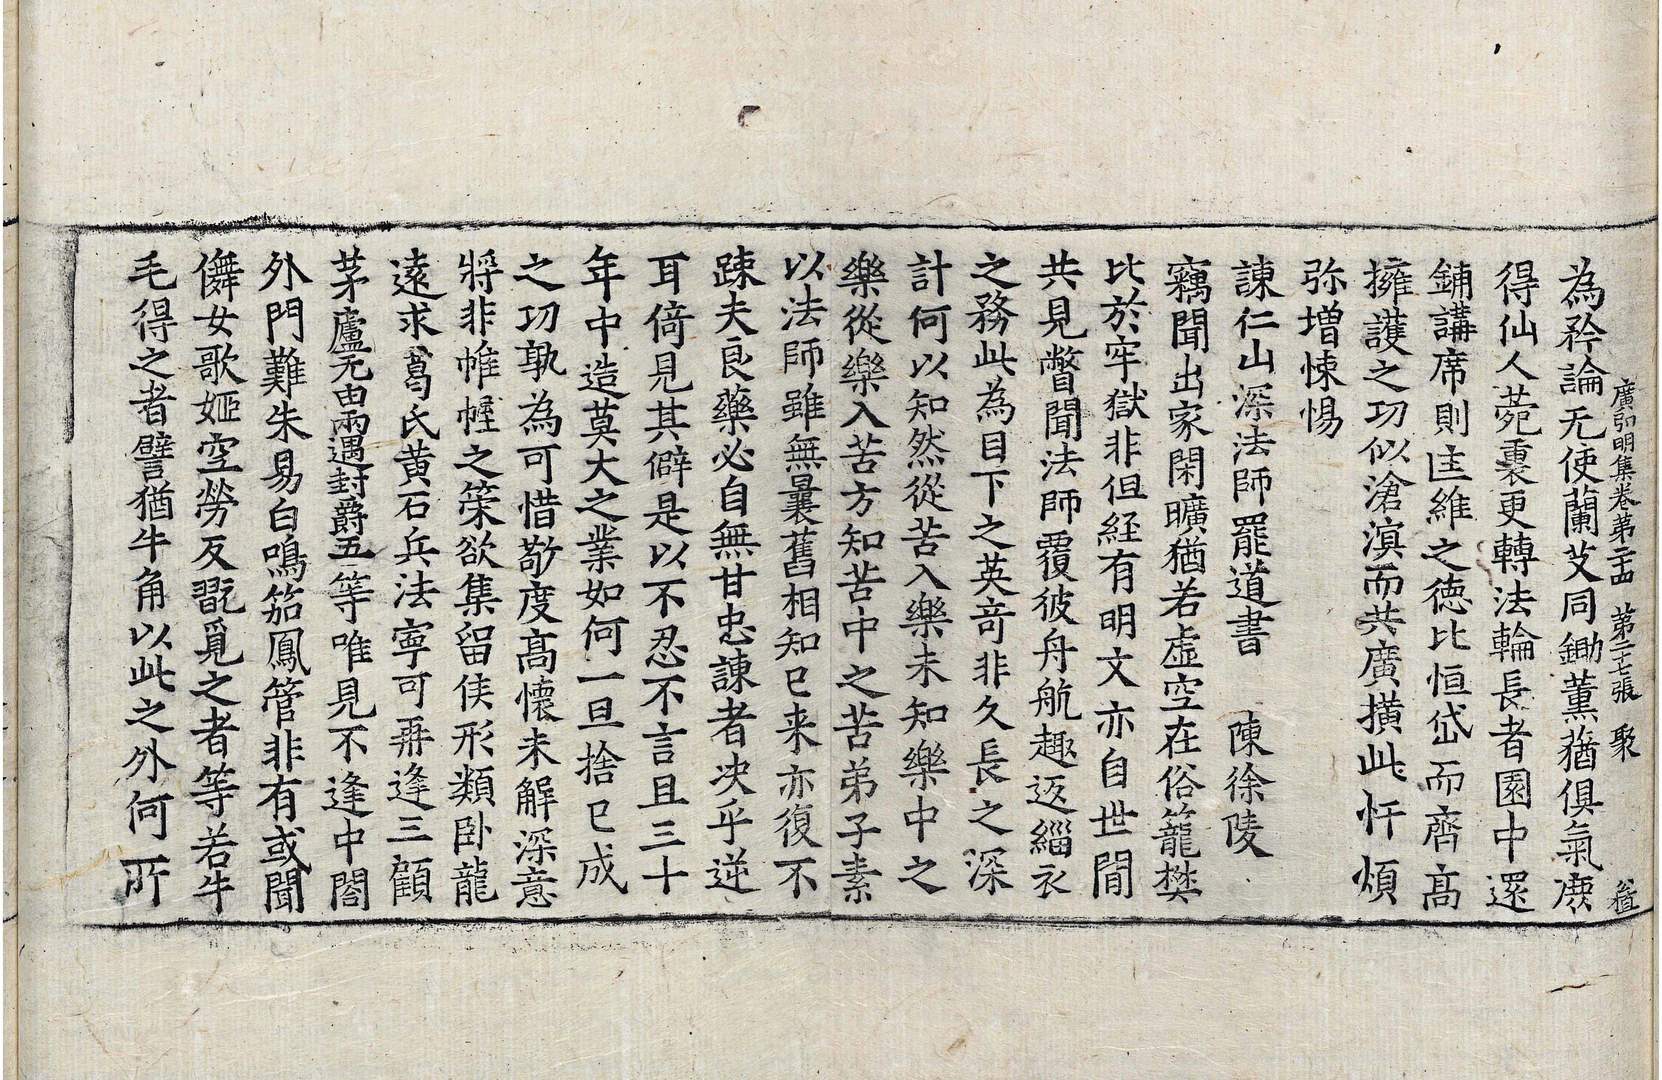 廣弘明集卷第二十四 第二十七張 聚
為矜論无使蘭艾同鋤薰猶俱氣庶
得仙人菀裏更轉法輪長者園中還
鋪講席則匡維之德比恒岱而齊髙
擁護之功似滄溟而共廣撗此忏煩
弥增悚惕
諫仁山深法師罷道書 陳徐陵
竊聞出家閑曠猶若虛空在俗籠樊
比於牢獄非但経有明文亦自世間
共見瞥聞法師覆彼舟航趣返緇衣
之務此為目下之英竒非久長之深
計何以知然從苦入樂未知樂中之
樂從樂入苦方知苦中之苦弟子素
以法師雖無曩舊相知已来亦復不
踈夫良藥必自無甘忠諫者决乎逆
耳倚見其僻是以不忍不言且三十
年中造莫大之業如何一旦捨已成
之功孰為可惜敬度髙懷未解深意
將非帷幄之策欲集留侯形類卧龍
遠求葛氏黄石兵法寧可再逢三顧
茅廬无由兩遇封爵五等唯見不逢中閤
外門難朱易白鳴笳鳳管非有或聞
儛女歌姬空勞反翫覓之者等若牛
毛得之者譬猶牛角以此之外何所